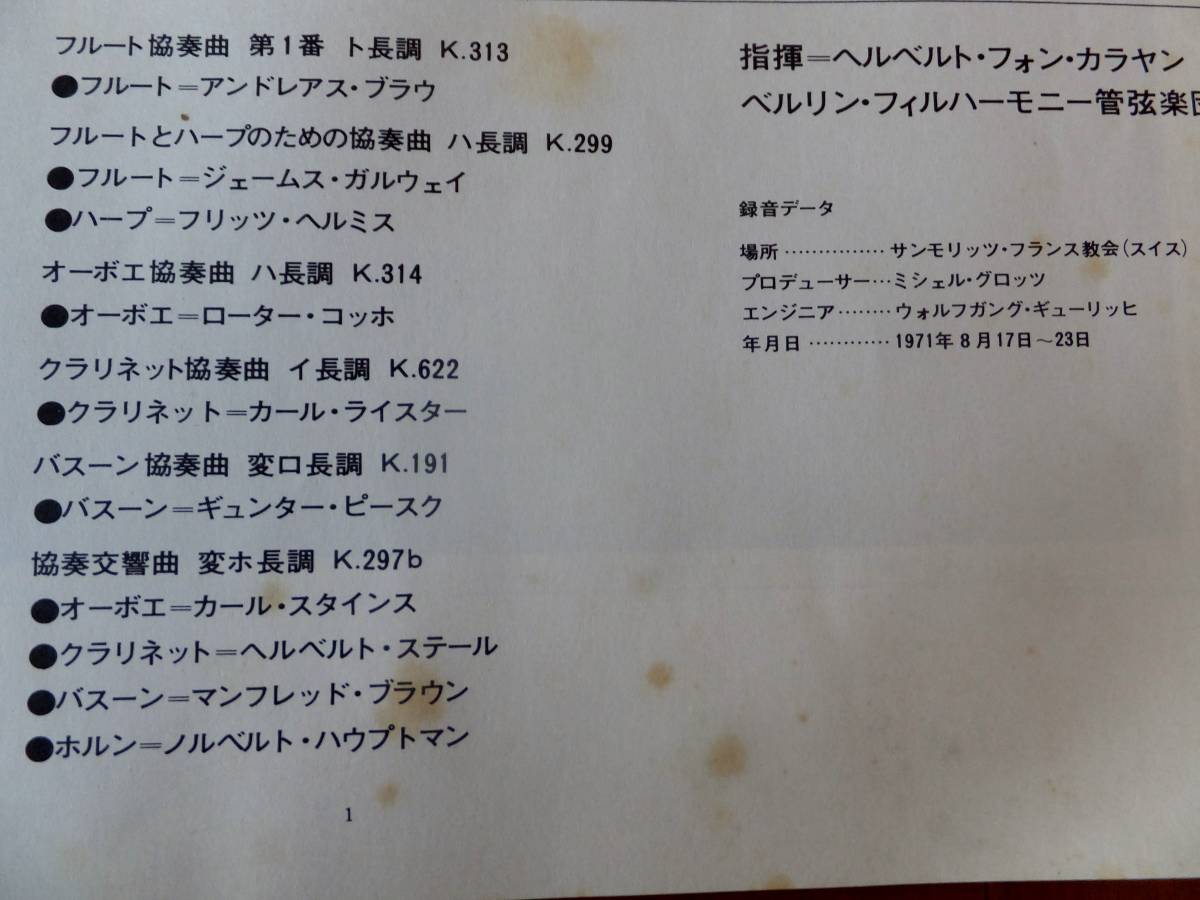 フルート協奏曲 第1番 ト長調 K.313
●フルート＝アンドレアス・ブラウ
フルートとハープのための協奏曲 ハ長調 K.299
●フルート＝ジェームス・ガルウェイ
●ハープ＝フリッツ・ヘルミス
オーボエ協奏曲 ハ長調 K.314
●オーボエ＝ローター・コッホ
クラリネット協奏曲 イ長調 K.622
●クラリネット＝カール・ライスター
バスーン協奏曲 変ロ長調 K.191
●バスーン＝ギュンター・ピースク
協奏交響曲 変ホ長調 K.297b
●オーボエ＝カール・スタインス
●クラリネット＝ヘルベルト・ステール
●バスーン＝マンフレッド・ブラウン
●ホルン＝ノルベルト・ハウプトマン
1
指揮＝ヘルベルト・フォン・カラヤン
ベルリン・フィルハーモニー管弦楽団
録音データ
場所 …………… サンモリッツ・フランス教会(スイス)
プロデューサー…ミシェル・グロッツ
エンジニア ……… ウォルフガング・ギューリッヒ
年月日 ………… 1971年8月17日～23日